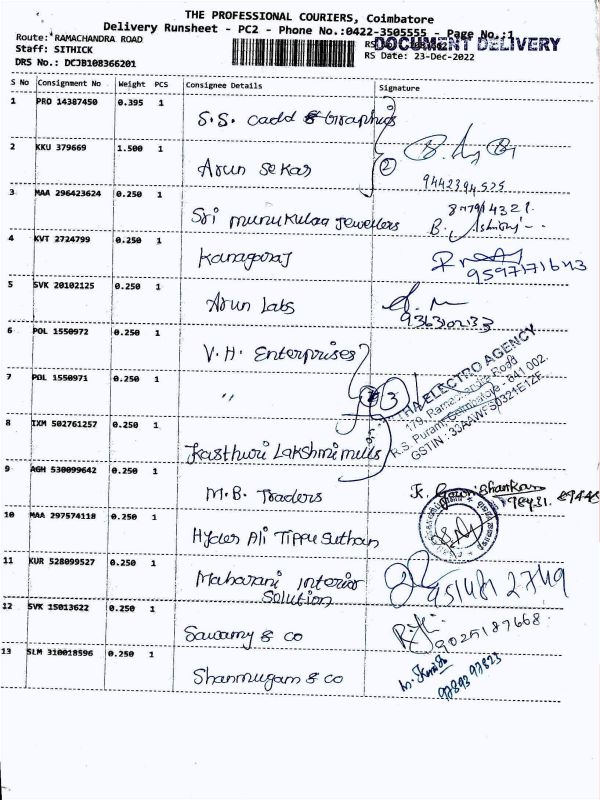 THE PROFESSIONAL COURIERS, Coimbatore
Delivery Runsheet - PC2 - Phone No.:0422-3505555 - Page No.:1
Route: RAMACHANDRA ROAD
DOCUMENT DELIVERY
Staff: SITHICK
RS Date: 23-Dec-2022
DRS No.: DCJB108366201
S No Consignment No Weight PCS Consignee Details Signature
1 PRO 14387450 0.395 1 S.S. Cadd & Graphics
2 KKU 379669 1.500 1 Arun Sekar 2
9442394535
3 MAA 296423624 0.250 1 Sri Murukulaa Jewellers
4 KVT 2724799 0.250 1 Kanagaraj
9597171643
5 SVK 20102125 0.250 1 Arun Labs
6 POL 1550972 0.250 1 V.H. Enterprises
7 POL 1550971 0.250 1 " 3
THA ELECTRO AGENCY
179, Ramachandra Road
R.S. Puram, Coimbatore - 641 002.
8 IXM 502761257 0.250 1 Kasthuri Lakshmi mills
9 AGH 530099642 0.250 1 M.B. Traders
K. Gowri Shankar
10 MAA 297574118 0.250 1 Hyder Ali Tippu Sulthan
11 KUR 528099527 0.250 1 Maharani Interior
Solution
9514812749
12 SVK 15013622 0.250 1 Sawamy & co
9025187668
13 SLM 310018596 0.250 1 Shanmugam & co
9789397823